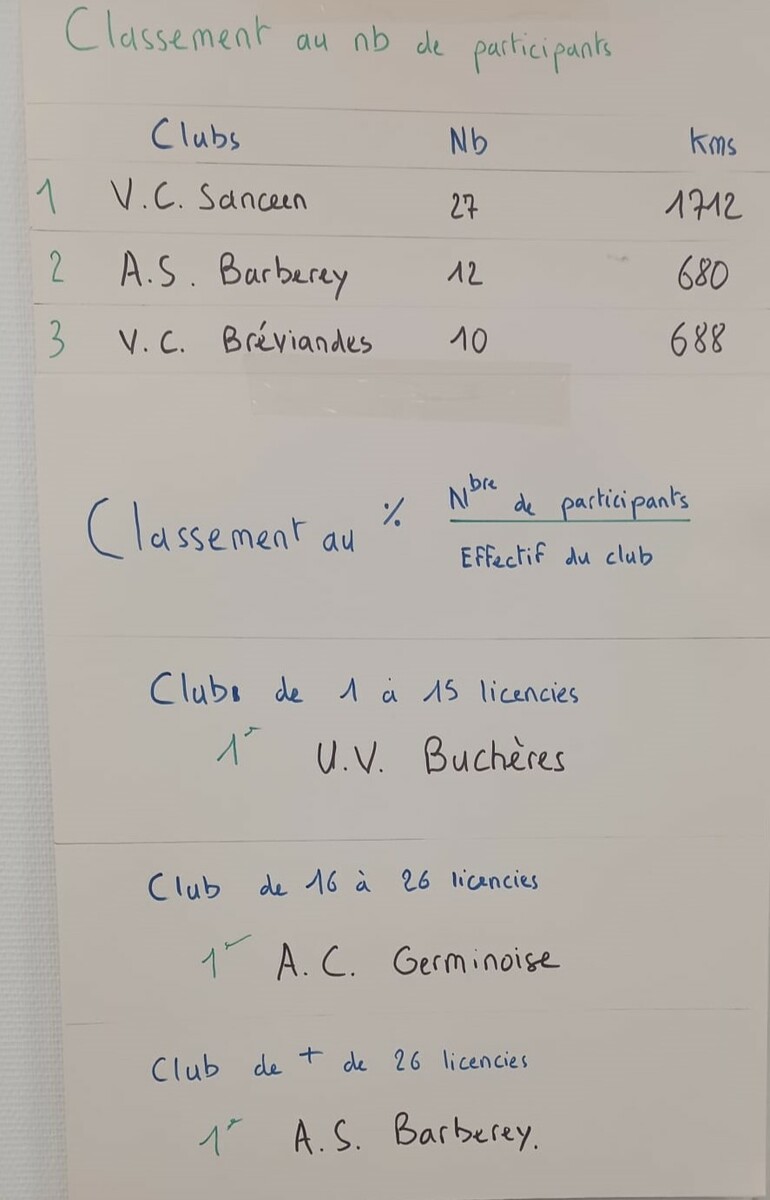 Classement au nb de participants
Clubs Nb Kms
1 V.C. Sanceen 27 1712
2 A.S. Barberey 12 680
3 V.C. Bréviandes 10 688
Classement au % Nbre de participants
Effectif du club
Clubs de 1 à 15 licencies
1er U.V. Buchères
Club de 16 à 26 licencies
1er A.C. Germinoise
Club de + de 26 licencies
1er A.S. Barberey.